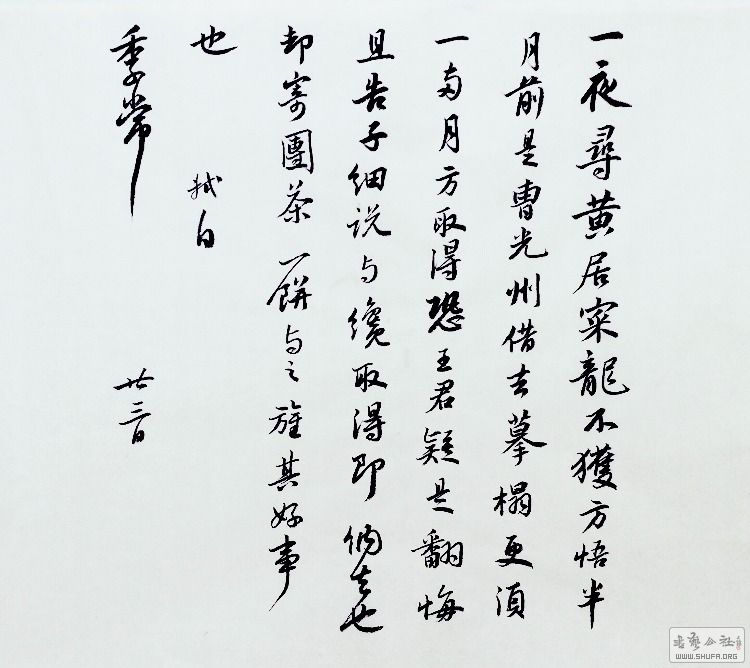 一夜尋黄居寀龍不獲方悟半
月前是曹光州借去摹榻更須
一兩月方取得恐王君疑是翻悔
且告子細说与纔取得即納去也
却寄團茶一餅与之旌其好事
也 軾白
季常 廿三日
書藝公社
WWW.SHUFA.ORG